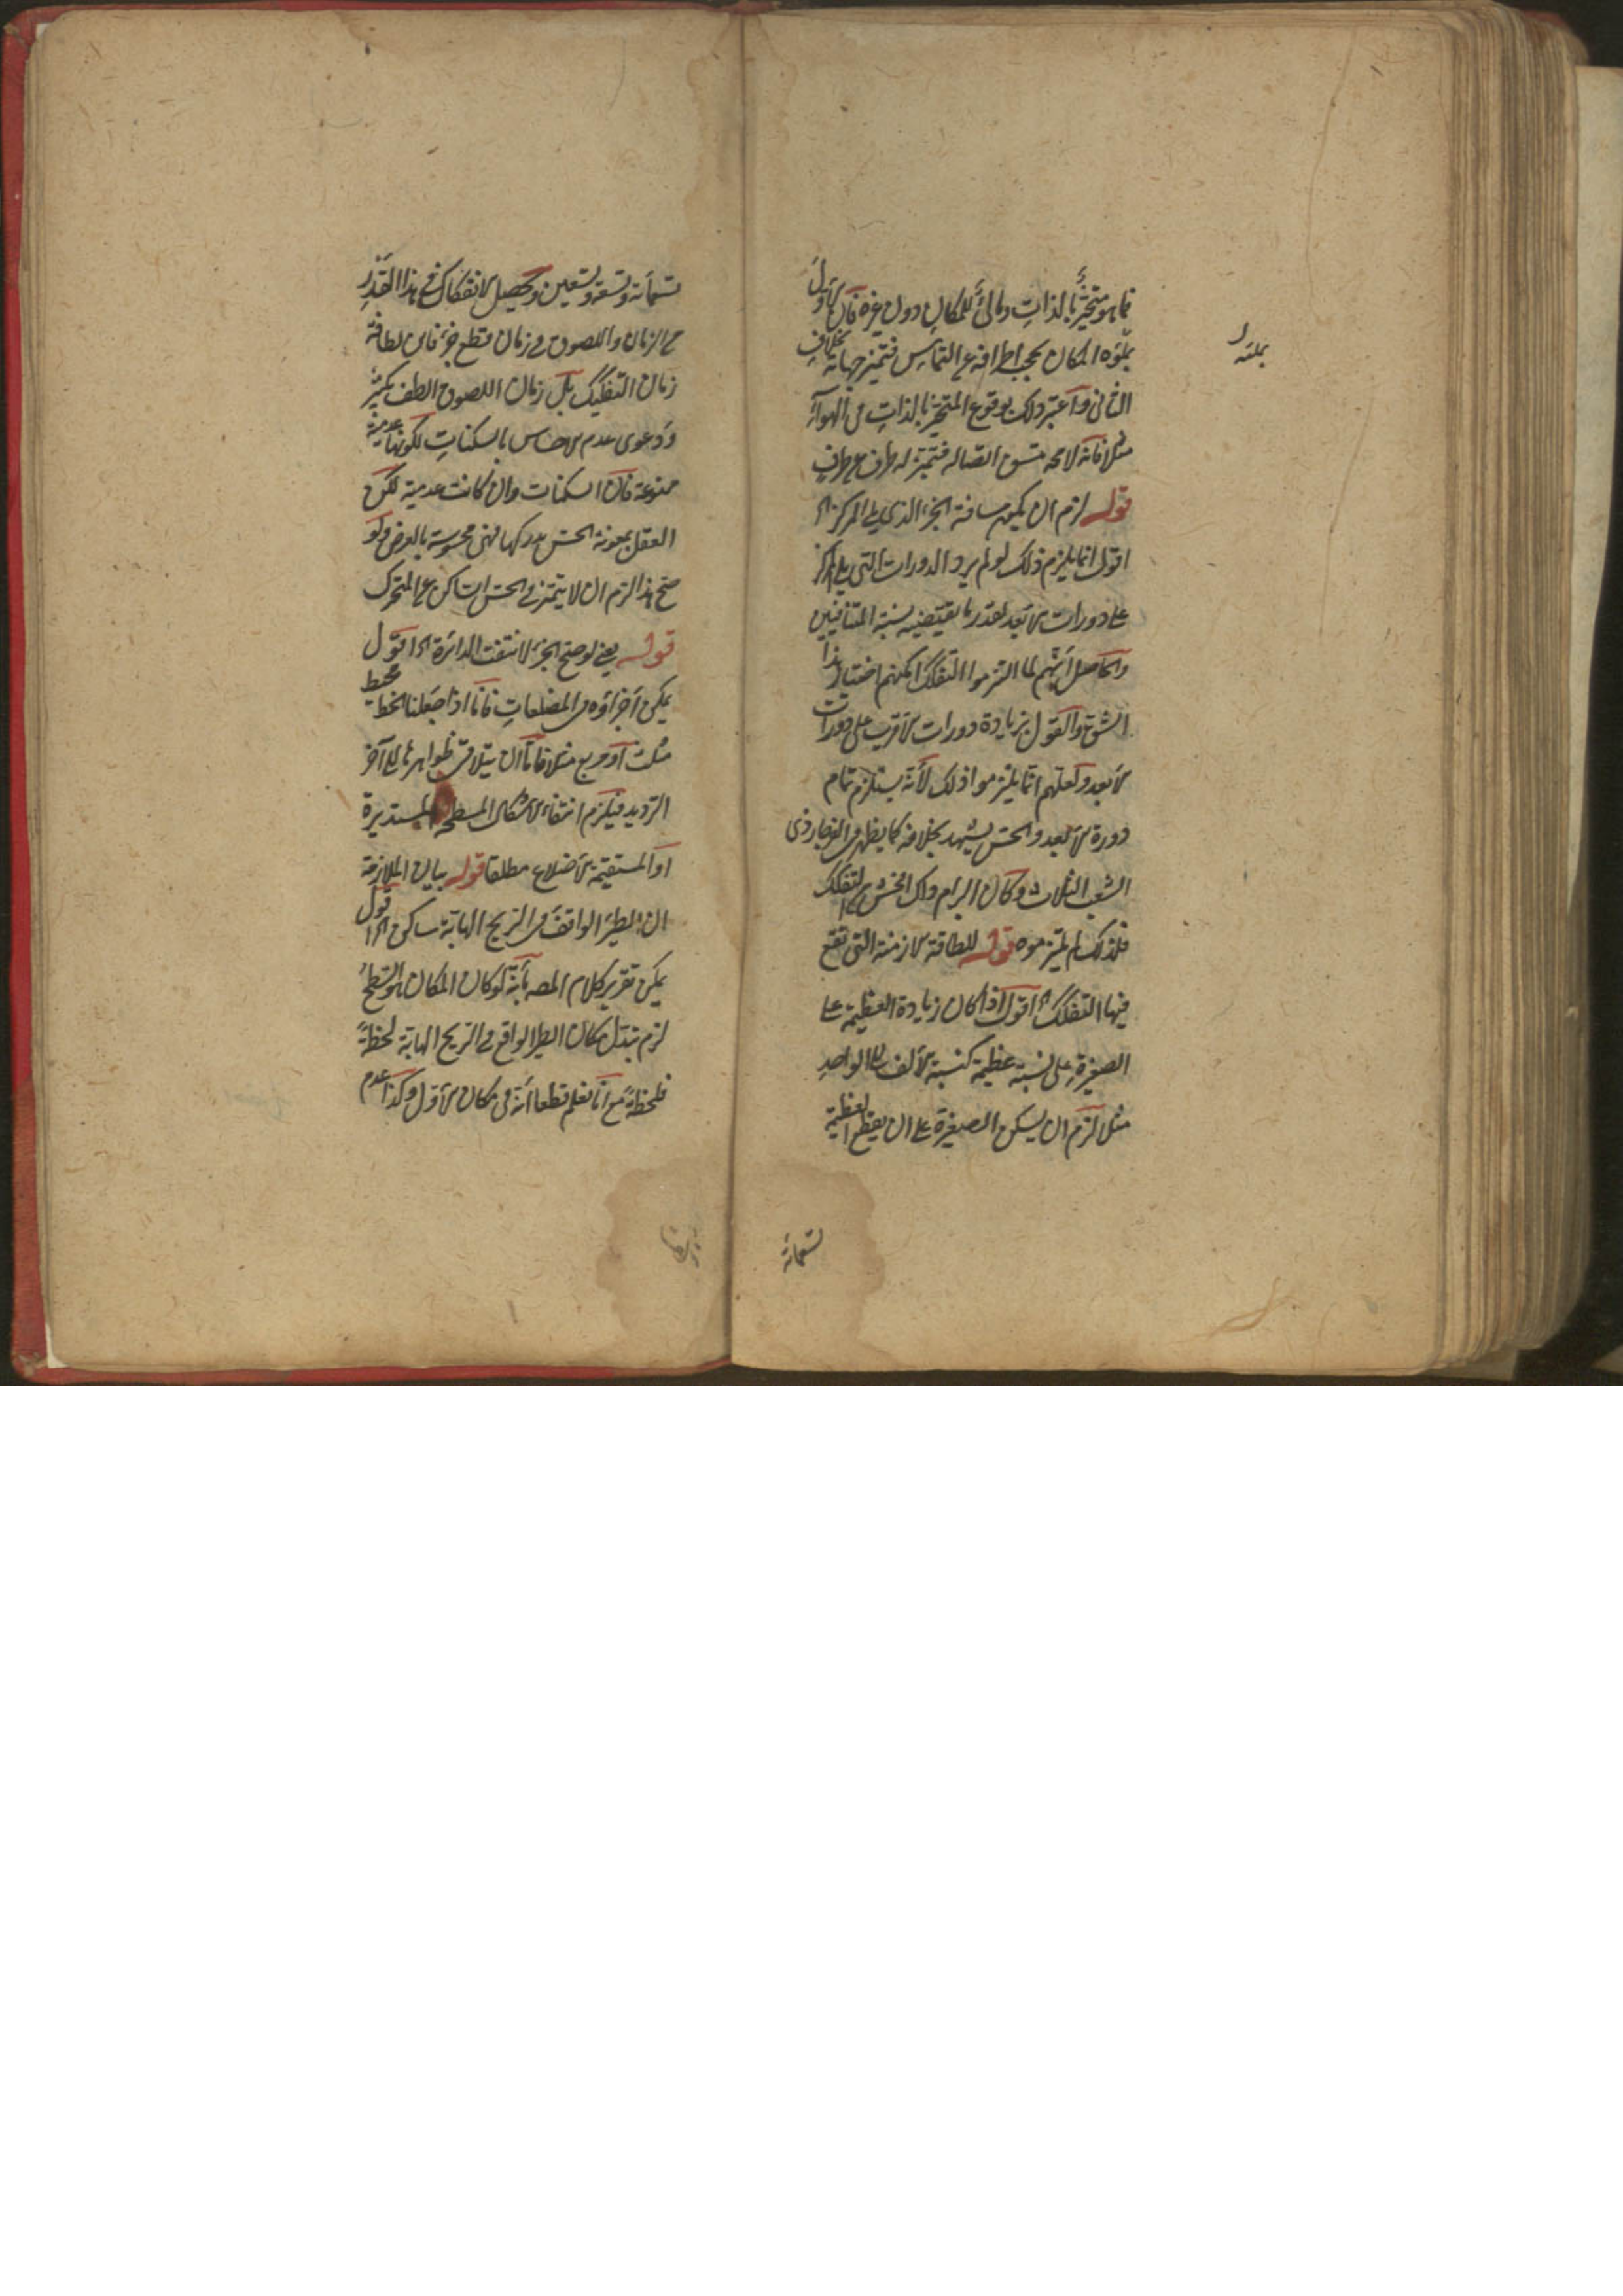 فما هو متحيّز بالذات ومالئ للمكان دون غيره فان الاول
بملوه المكان يحجب اطرافه عن التماس فتميز جهاته بخلاف
الثاني واعتبر ذلك بوقوع المتحيز بالذات في الهواء
مثلا فانه لا محه متسق اتصاله فتميز له طرف عن طرف
قوله لزم ان يكون مسافة الجزء الذي يلي المركز الخ
اقول انما يلزم ذلك لو لم يزد الدورات التي يلي المركز
على دورات الابعد بقدر ما يقتضيه نسبة المتنافيين
والحاصل انهم لما التزموا التفكك امكنهم اختيار هذا
الشق والقول بزيادة دورات الاقرب على دورات
الابعد ولعلهم انما يلتزموا ذلك لانه يستلزم تمام
دورة الابعد والحس يشهد بخلافه كما يظهر في الفرجار ذي
الشعب الثلاث وكان ابرام ذلك افحش من التفكك
فلذلك لم يلتزموه قوله للطافة الازمنة التي تقع
فيها التفكك الخ اقول اذا كان زيادة العظيمة على
الصغيرة على نسبة عظيمة كنسبة الالف الى الواحد
مثلا لزم ان يسكن الصغيرة على ان يقطع العظيمة
تسعمائة
بملئه
تسعمائة وتسعة وتسعين وتحصيل الانفكاك في هذا القدر
من الزمان واللصوق في زمان قطع جزء فاين لطافة
زمان التفكيك بل زمان اللصوق الطف بكثير
ودعوى عدم الاحساس بالسكنات لكونها عدمية
ممنوعة فان السكنات وان كانت عدمية لكن
العقل بمعونة الحس يدركها فهي محسوسة بالعرض ولو
صح هذا لزم ان لا يتميز في الحس الساكن عن المتحرك
قوله يعني لو صح الجزء لانتفت الدائرة الخ اقول
يمكن اجراؤه في المضلعات فانا اذا جعلنا الخط محيط
مثلث او مربع مثلا فاما ان يتلاقى ظواهرها الى آخر
الترديد فيلزم انتفاء الاشكال المسطحة المستديرة
او المستقيمة الاضلاع مطلقا قوله بيان الملازمة
ان الطير الواقف في الريح الهابة ساكن الخ اقول
يمكن تقرير كلام المصه بانه لو كان المكان هو السطح
لزم تبدل مكان الطير الواقع في الريح الهابة لحظة
فلحظة مع انا نعلم قطعا انه في مكان الاول وكذا عدم